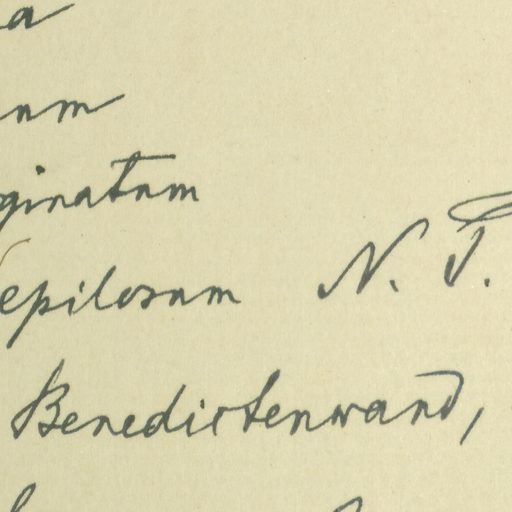 a
um
ginatum
epilosum N. T.
Benedictenwand,